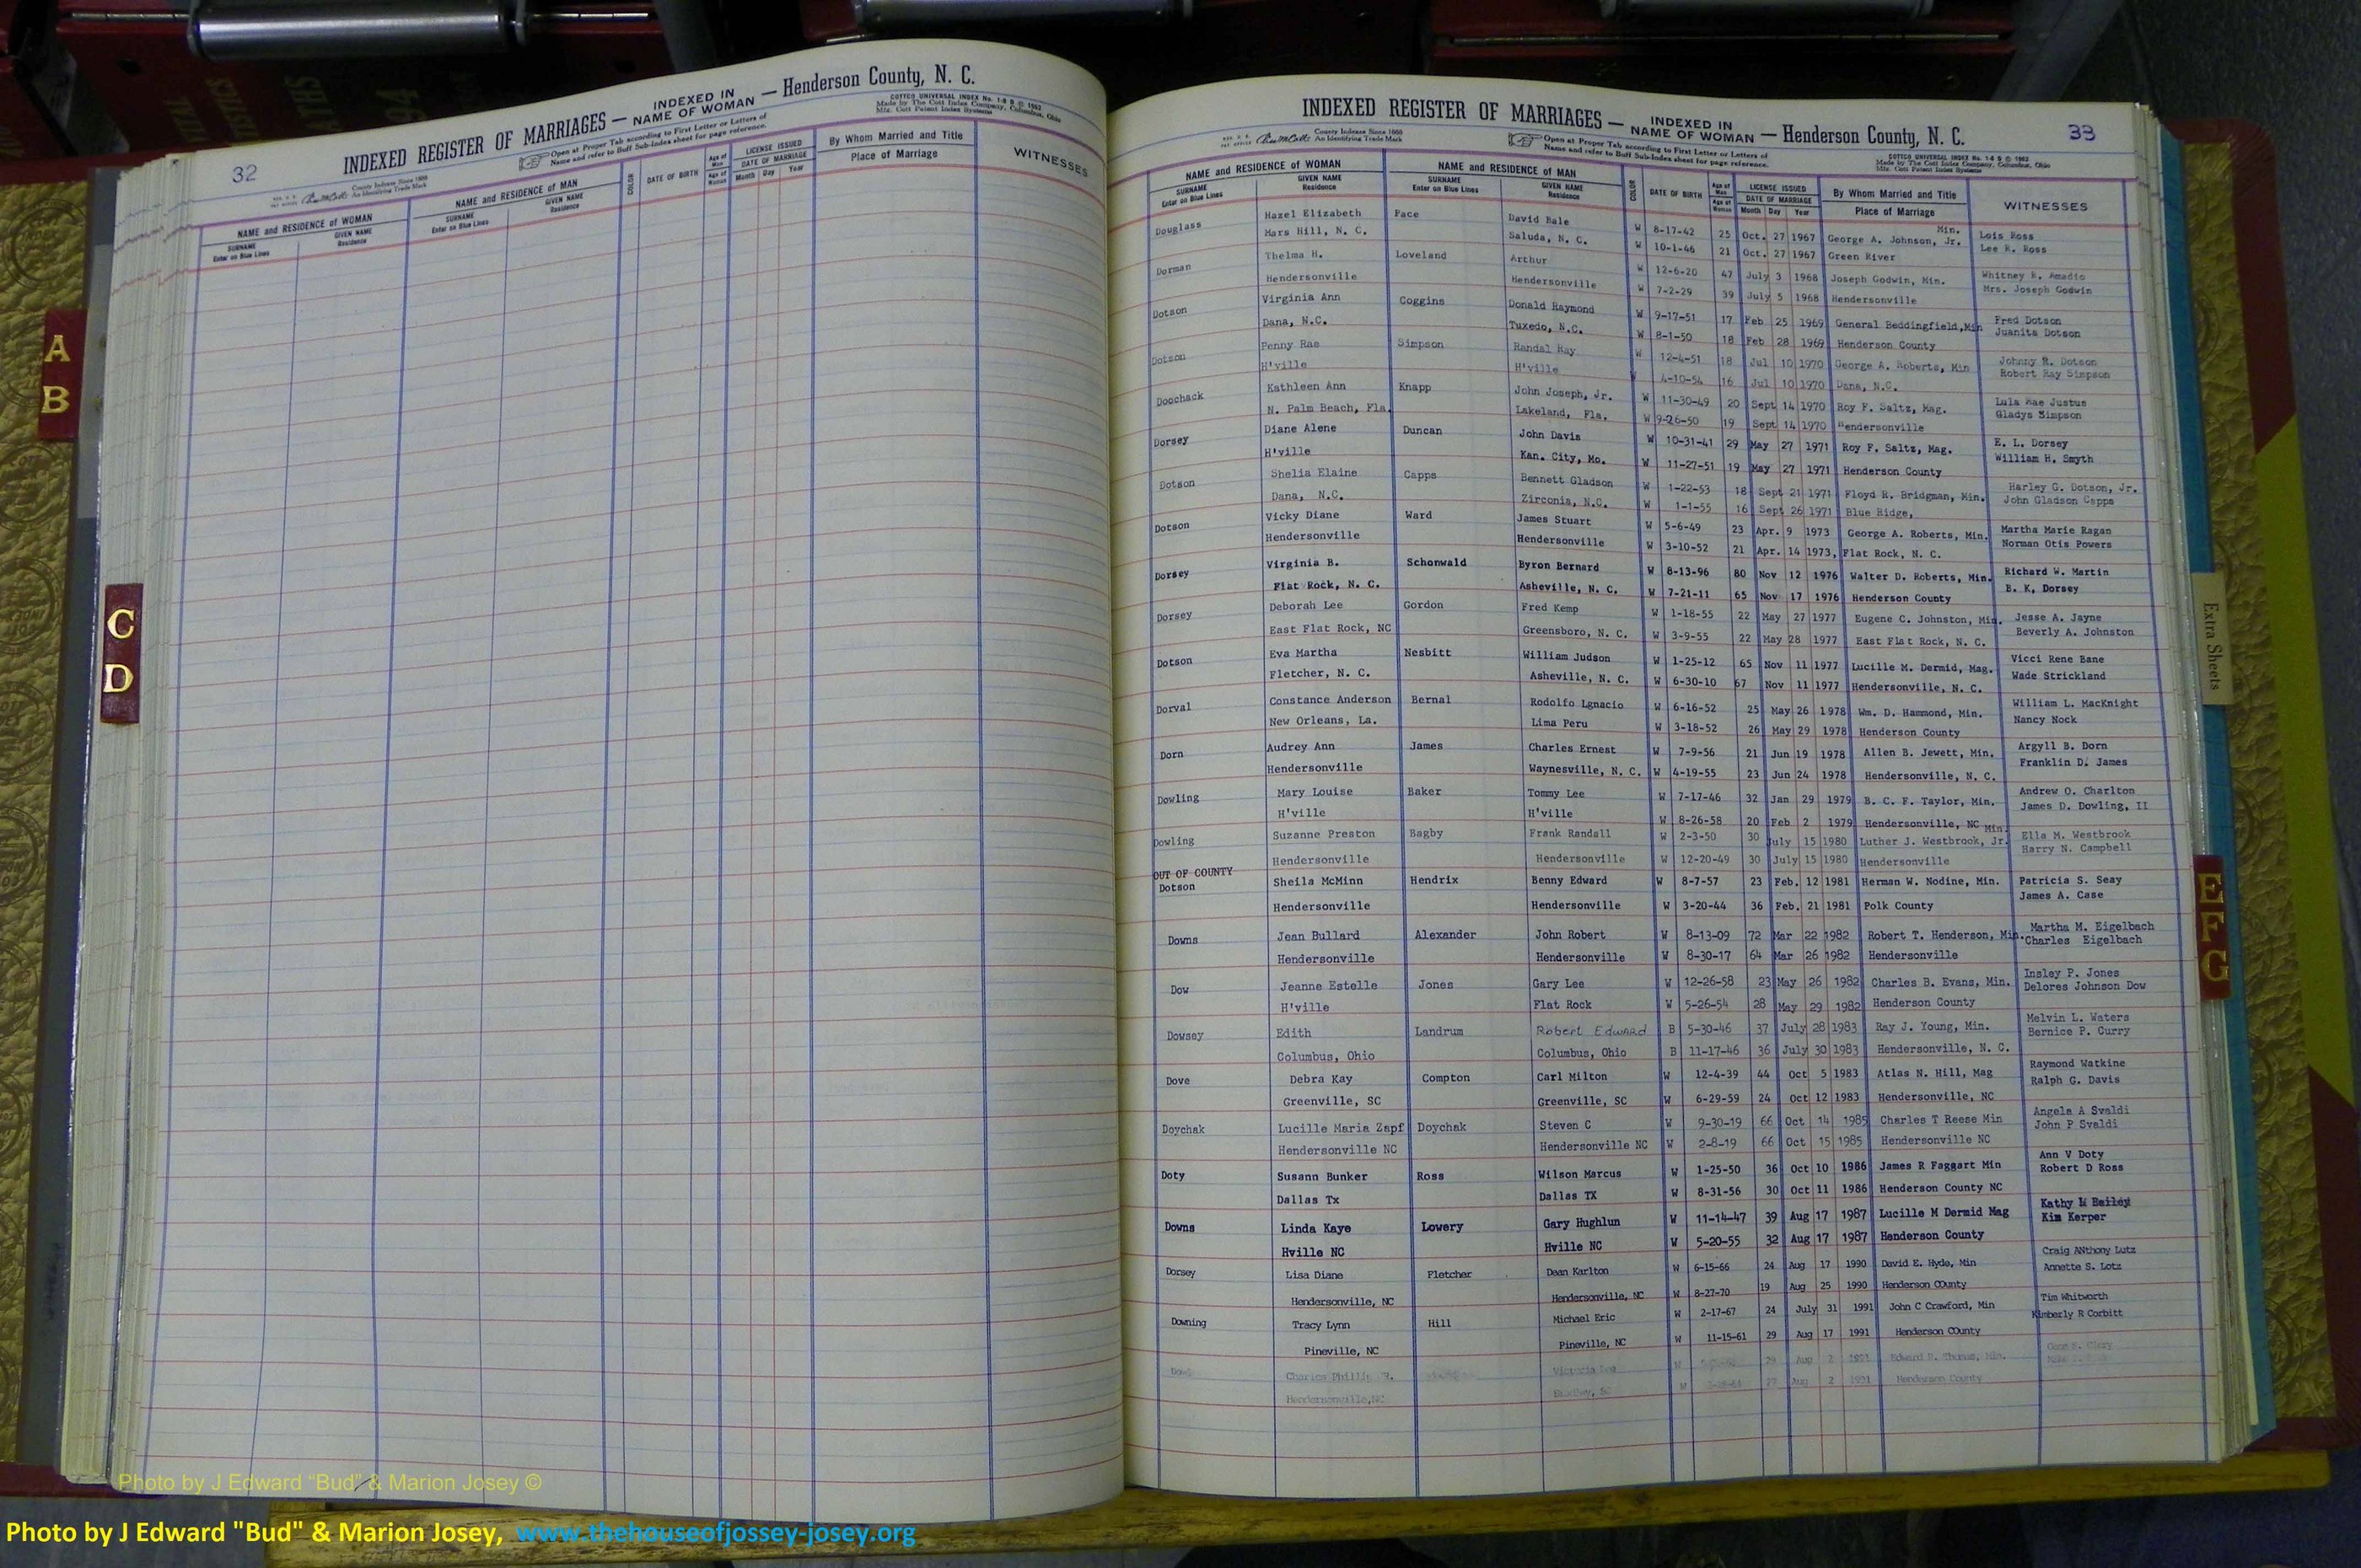 32
INDEXED REGISTER OF MARRIAGES — INDEXED IN NAME OF WOMAN — Henderson County, N. C.
County Indexes Since 1888
An Identifying Trade Mark
Open at Proper Tab according to First Letter or Letters of
Name and refer to Buff Sub-Index sheet for page reference.
COTTCO UNIVERSAL INDEX
Made by The Cott Index Company, Columbus, Ohio
Mfg. Cott Patent Index Systems
NAME and RESIDENCE of WOMAN
SURNAME
Enter on Blue Lines
GIVEN NAME
Residence
NAME and RESIDENCE of MAN
SURNAME
Enter on Blue Lines
GIVEN NAME
Residence
COLOR
DATE OF BIRTH
Age of Man
Age of Woman
LICENSE ISSUED
DATE OF MARRIAGE
Month Day Year
By Whom Married and Title
Place of Marriage
WITNESSES
33
INDEXED REGISTER OF MARRIAGES — INDEXED IN NAME OF WOMAN — Henderson County, N. C.
County Indexes Since 1888
An Identifying Trade Mark
Open at Proper Tab according to First Letter or Letters of
Name and refer to Buff Sub-Index sheet for page reference.
COTTCO UNIVERSAL INDEX
Made by The Cott Index Company, Columbus, Ohio
Mfg. Cott Patent Index Systems
NAME and RESIDENCE of WOMAN
SURNAME
Enter on Blue Lines
GIVEN NAME
Residence
NAME and RESIDENCE OF MAN
SURNAME
Enter on Blue Lines
GIVEN NAME
Residence
COLOR
DATE OF BIRTH
Age of Man
Age of Woman
LICENSE ISSUED
DATE OF MARRIAGE
Month Day Year
By Whom Married and Title
Place of Marriage
WITNESSES
Douglass Hazel Elizabeth Pace David Bale W 8-17-42 25 Oct. 27 1967 George A. Johnson, Jr. Min. Lois Ross
Mars Hill, N. C. Saluda, N. C. W 10-1-46 21 Oct. 27 1967 Green River Lee R. Ross
Dorman Thelma H. Loveland Arthur W 12-6-20 47 July 3 1968 Joseph Godwin, Min. Whitney R. Amadio
Hendersonville Hendersonville W 7-2-29 39 July 5 1968 Hendersonville Mrs. Joseph Godwin
Dotson Virginia Ann Coggins Donald Raymond W 9-17-51 17 Feb 25 1969 General Beddingfield,Min Fred Dotson
Dana, N.C. Tuxedo, N.C. W 8-1-50 18 Feb 28 1969 Henderson County Juanita Dotson
Dotson Penny Rae Simpson Randal Ray W 12-4-51 18 Jul 10 1970 George A. Roberts, Min Johnny R. Dotson
H'ville H'ville W 4-10-54 16 Jul 10 1970 Dana, N.C. Robert Ray Simpson
Doochack Kathleen Ann Knapp John Joseph, Jr. W 11-30-49 20 Sept 14 1970 Roy F. Saltz, Mag. Lula Mae Justus
N. Palm Beach, Fla. Lakeland, Fla. W 9-26-50 19 Sept 14 1970 Hendersonville Gladys Simpson
Dorsey Diane Alene Duncan John Davis W 10-31-41 29 May 27 1971 Roy F. Saltz, Mag. E. L. Dorsey
H'ville Kan. City, Mo. W 11-27-51 19 May 27 1971 Henderson County William H. Smyth
Dotson Shelia Elaine Capps Bennett Gladson W 1-22-53 18 Sept 21 1971 Floyd R. Bridgman, Min. Harley G. Dotson, Jr.
Dana, N.C. Zirconia, N.C. W 1-1-55 16 Sept 26 1971 Blue Ridge, John Gladson Capps
Dotson Vicky Diane Ward James Stuart W 5-6-49 23 Apr. 9 1973 George A. Roberts, Min. Martha Marie Ragan
Hendersonville Hendersonville W 3-10-52 21 Apr. 14 1973, Flat Rock, N. C. Norman Otis Powers
Dorsey Virginia B. Schonwald Byron Bernard W 8-13-96 80 Nov 12 1976 Walter D. Roberts, Min. Richard W. Martin
Flat Rock, N. C. Asheville, N. C. W 7-21-11 65 Nov 17 1976 Henderson County B. K. Dorsey
Dorsey Deborah Lee Gordon Fred Kemp W 1-18-55 22 May 27 1977 Eugene C. Johnston, Min. Jesse A. Jayne
East Flat Rock, NC Greensboro, N. C. W 3-9-55 22 May 28 1977 East Flat Rock, N. C. Beverly A. Johnston
Dotson Eva Martha Nesbitt William Judson W 1-25-12 65 Nov 11 1977 Lucille M. Dermid, Mag. Vicci Rene Bane
Fletcher, N. C. Asheville, N. C. W 6-30-10 67 Nov 11 1977 Hendersonville, N. C. Wade Strickland
Dorval Constance Anderson Bernal Rodolfo Lgnacio W 6-16-52 25 May 26 1978 Wm. D. Hammond, Min. William L. MacKnight
New Orleans, La. Lima Peru W 3-18-52 26 May 29 1978 Henderson County Nancy Nock
Dorn Audrey Ann James Charles Ernest W 7-9-56 21 Jun 19 1978 Allen B. Jewett, Min. Argyll B. Dorn
Hendersonville Waynesville, N. C. W 4-19-55 23 Jun 24 1978 Hendersonville, N. C. Franklin D. James
Dowling Mary Louise Baker Tommy Lee W 7-17-46 32 Jan 29 1979 B. C. F. Taylor, Min. Andrew O. Charlton
H'ville H'ville W 8-26-58 20 Feb 2 1979 Hendersonville, NC James D. Dowling, II
Dowling Suzanne Preston Bagby Frank Randall W 2-3-50 30 July 15 1980 Luther J. Westbrook, Jr. Min. Ella M. Westbrook
Hendersonville Hendersonville W 12-20-49 30 July 15 1980 Hendersonville Harry N. Campbell
OUT OF COUNTY
Dotson Sheila McMinn Hendrix Benny Edward W 8-7-57 23 Feb. 12 1981 Herman W. Nodine, Min. Patricia S. Seay
Hendersonville Hendersonville W 3-20-44 36 Feb. 21 1981 Polk County James A. Case
Downs Jean Bullard Alexander John Robert W 8-13-09 72 Mar 22 1982 Robert T. Henderson, Min. Martha M. Eigelbach
Hendersonville Hendersonville W 8-30-17 64 Mar 26 1982 Hendersonville Charles Eigelbach
Dow Jeanne Estelle Jones Gary Lee W 12-26-58 23 May 26 1982 Charles B. Evans, Min. Insley P. Jones
H'ville Flat Rock W 5-26-54 28 May 29 1982 Henderson County Delores Johnson Dow
Dowsey Edith Landrum Robert Edward B 5-30-46 37 July 28 1983 Ray J. Young, Min. Melvin L. Waters
Columbus, Ohio Columbus, Ohio B 11-17-46 36 July 30 1983 Hendersonville, N. C. Bernice P. Curry
Dove Debra Kay Compton Carl Milton W 12-4-39 44 Oct 5 1983 Atlas N. Hill, Mag Raymond Watkine
Greenville, SC Greenville, SC W 6-29-59 24 Oct 12 1983 Hendersonville, NC Ralph G. Davis
Doychak Lucille Maria Zapf Doychak Steven C W 9-30-19 66 Oct 14 1985 Charles T Reese Min Angela A Svaldi
Hendersonville NC Hendersonville NC W 2-8-19 66 Oct 15 1985 Hendersonville NC John P Svaldi
Doty Susann Bunker Ross Wilson Marcus W 1-25-50 36 Oct 10 1986 James R Faggart Min Ann V Doty
Dallas Tx Dallas TX W 8-31-56 30 Oct 11 1986 Henderson County NC Robert D Ross
Downs Linda Kaye Lowery Gary Hughlun W 11-14-47 39 Aug 17 1987 Lucille M Dermid Mag Kathy M Bailey
Hville NC Hville NC W 5-20-55 32 Aug 17 1987 Henderson County Kim Kerper
Dorsey Lisa Diane Fletcher Dean Karlton W 6-15-66 24 Aug 17 1990 David E. Hyde, Min Craig ANthony Lutz
Hendersonville, NC Hendersonville, NC W 8-27-70 19 Aug 25 1990 Henderson COunty Annette S. Lotz
Downing Tracy Lynn Hill Michael Eric W 2-17-67 24 July 31 1991 John C Crawford, Min Tim Whitworth
Pineville, NC Pineville, NC W 11-15-61 29 Aug 17 1991 Henderson COunty Kimberly R Corbitt
Charles Phillip R. Victoria W 29 Aug 2 1991 Edward R. Thomas, Min.
Hendersonville,NC W 27 Aug 2 1991 Henderson County
A
B
C
D
Extra Sheets
E
F
G
Photo by J Edward “Bud” & Marion Josey ©
Photo by J Edward "Bud" & Marion Josey, www.thehouseofjossey-josey.org